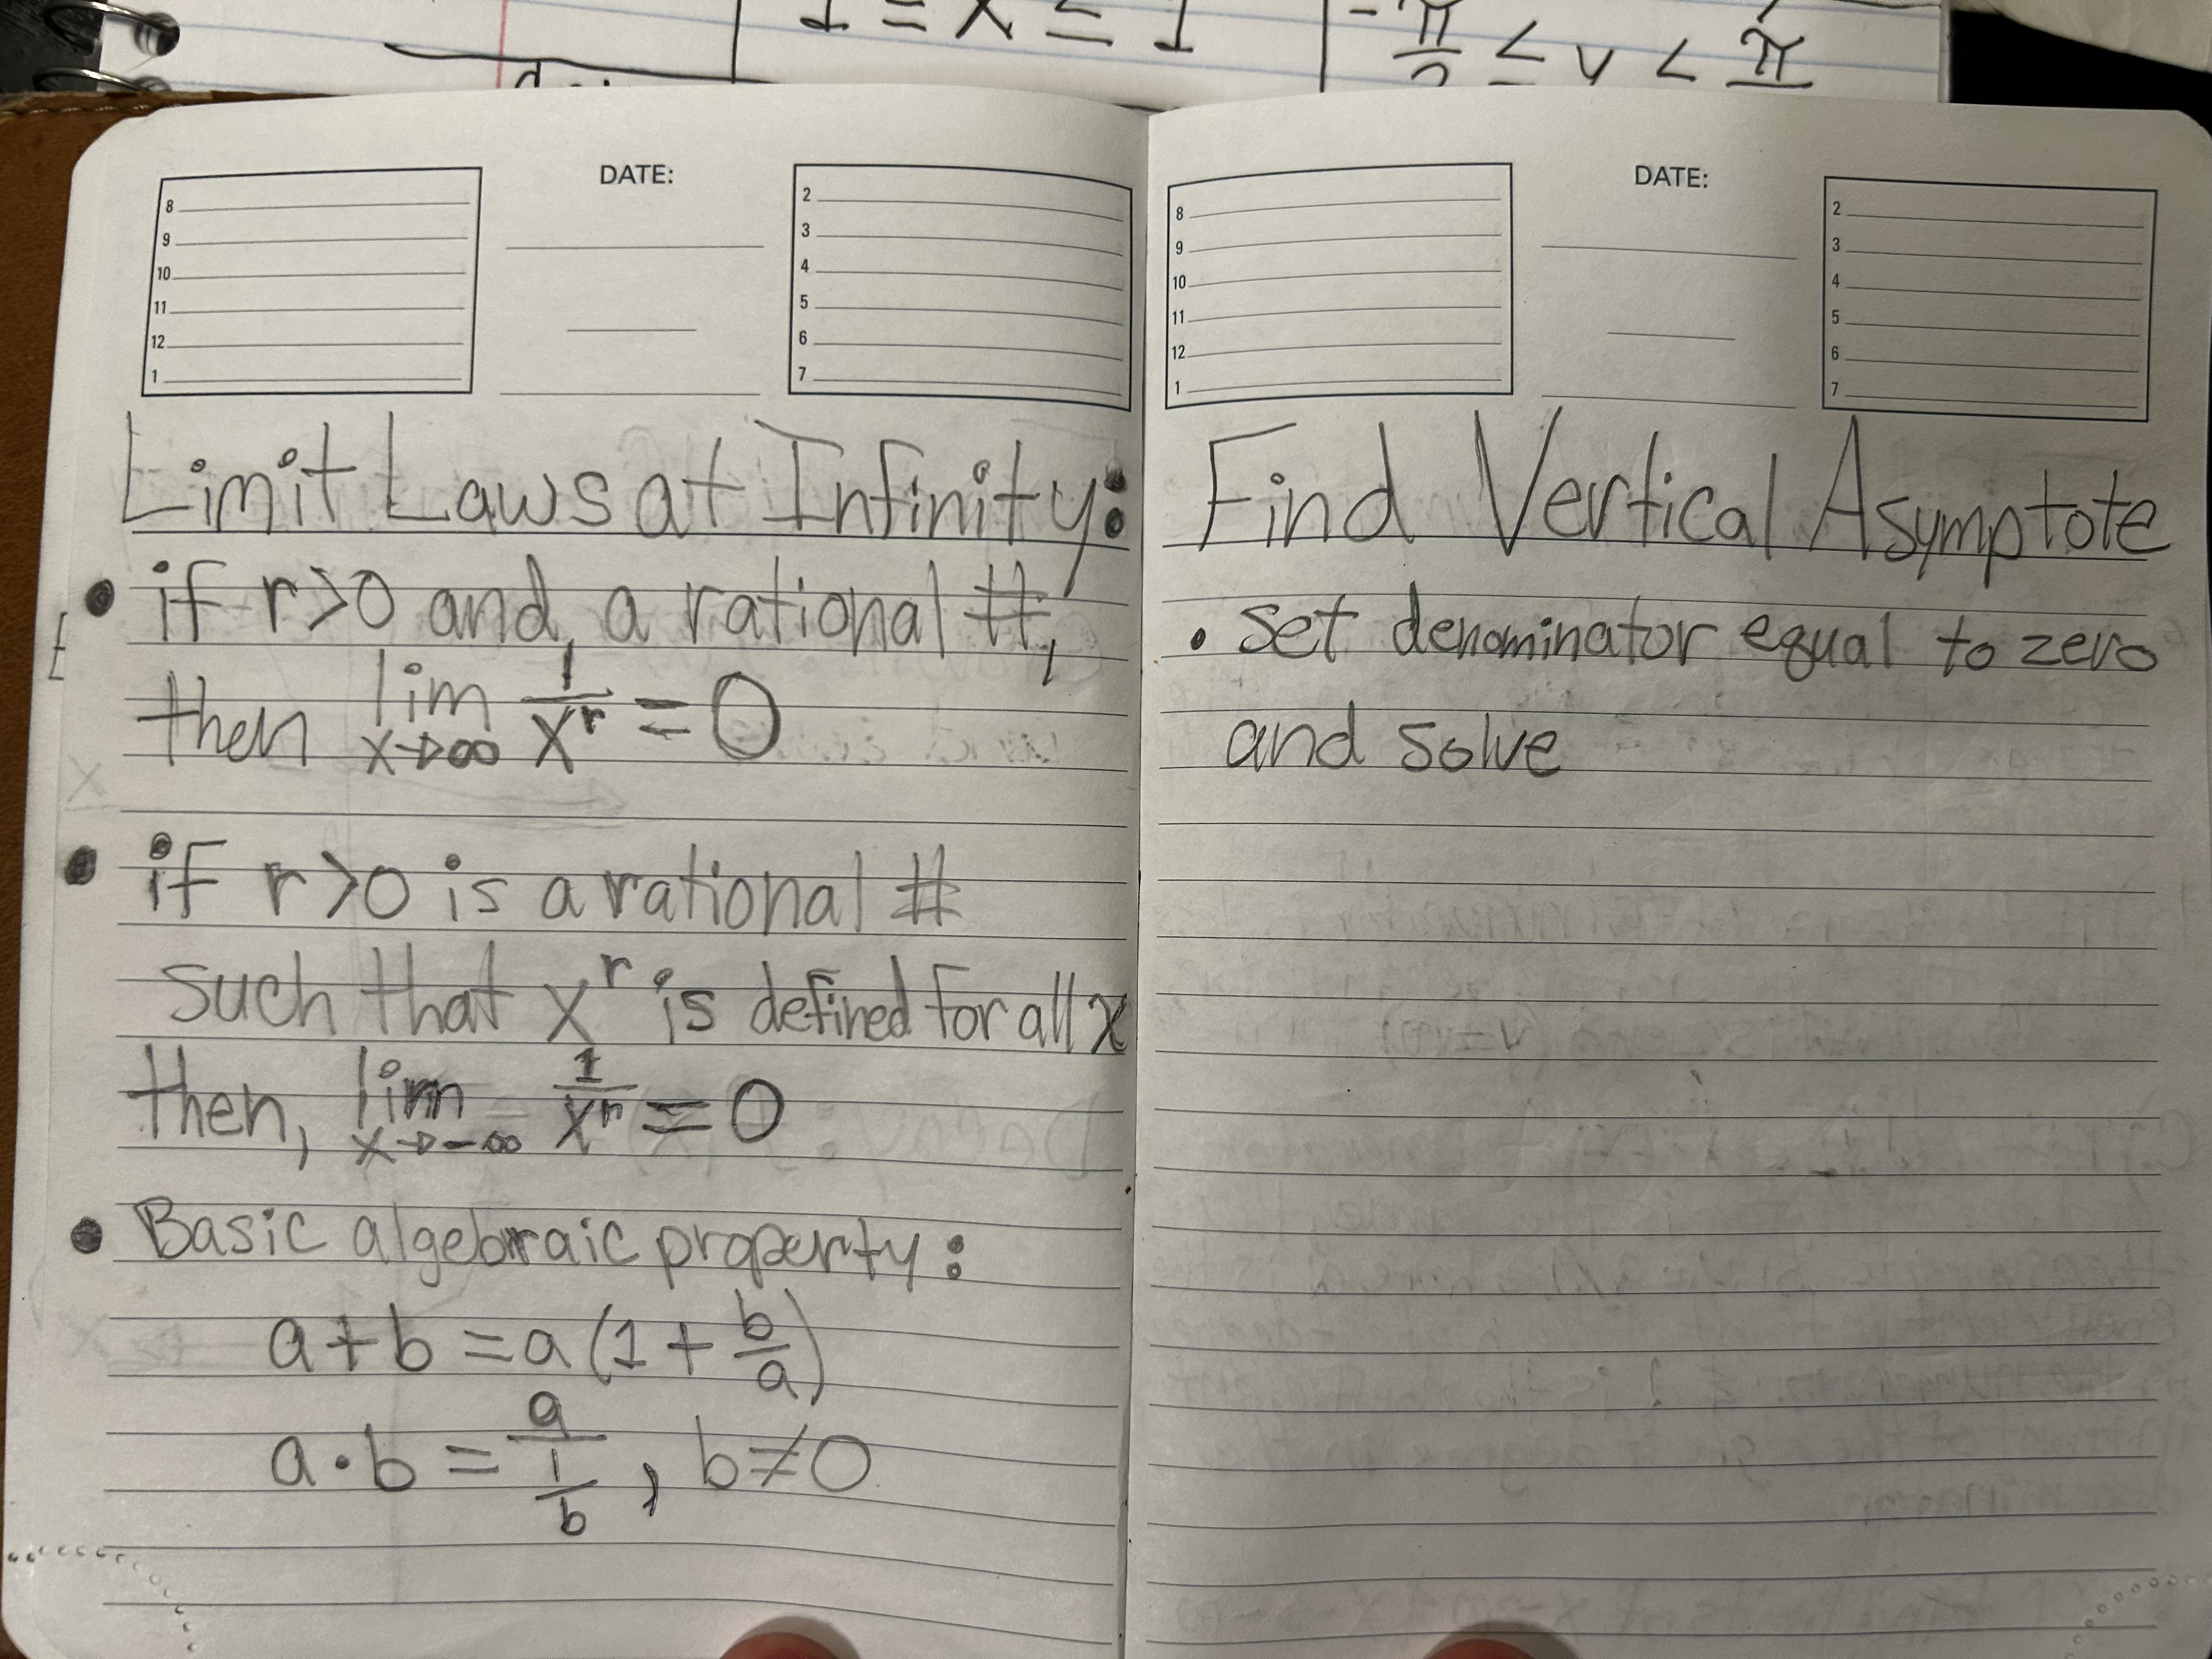 DATE:
8
9
10
11
12
1
2
3
4
5
6
7
Limit Laws at Infinity:
• if r>0 and a rational #,
then lim x→∞ 1/x^r = 0
• if r>0 is a rational #
such that x^r is defined for all x
then, lim x→-∞ 1/x^r = 0
• Basic algebraic property:
a+b = a(1 + b/a)
a·b = a/(1/b) , b≠0
DATE:
8
9
10
11
12
1
2
3
4
5
6
7
Find Vertical Asymptote
• Set denominator equal to zero
and solve